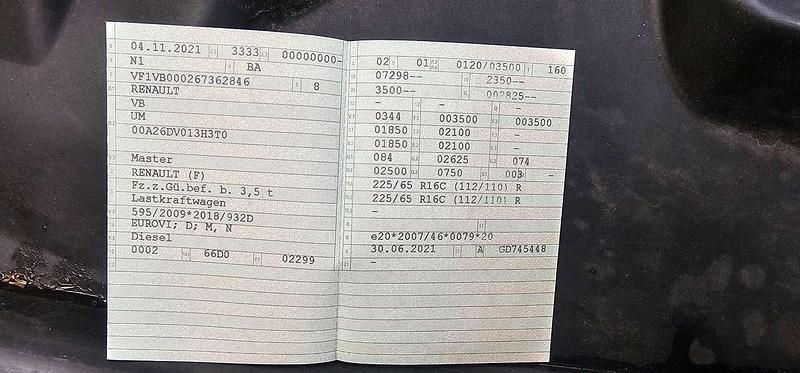 04.11.2021 3333 00000000-
N1 BA
VF1VB000267362846 8
RENAULT
VB
UM
00A26DV013H3T0
Master
RENAULT (F)
Fz.z.Gü.bef. b. 3,5 t
Lastkraftwagen
595/2009*2018/932D
EUROVI; D; M, N
Diesel
0002 66D0 02299
02 01 0120/03500 160
07298-- 2350--
3500-- 002825--
- - -
0344 003500 003500
01850 02100 -
01850 02100 -
084 02625 074
02500 0750 003 -
225/65 R16C (112/110) R
225/65 R16C (112/110) R
-
e20*2007/46*0079*20
30.06.2021 A GD745448
-